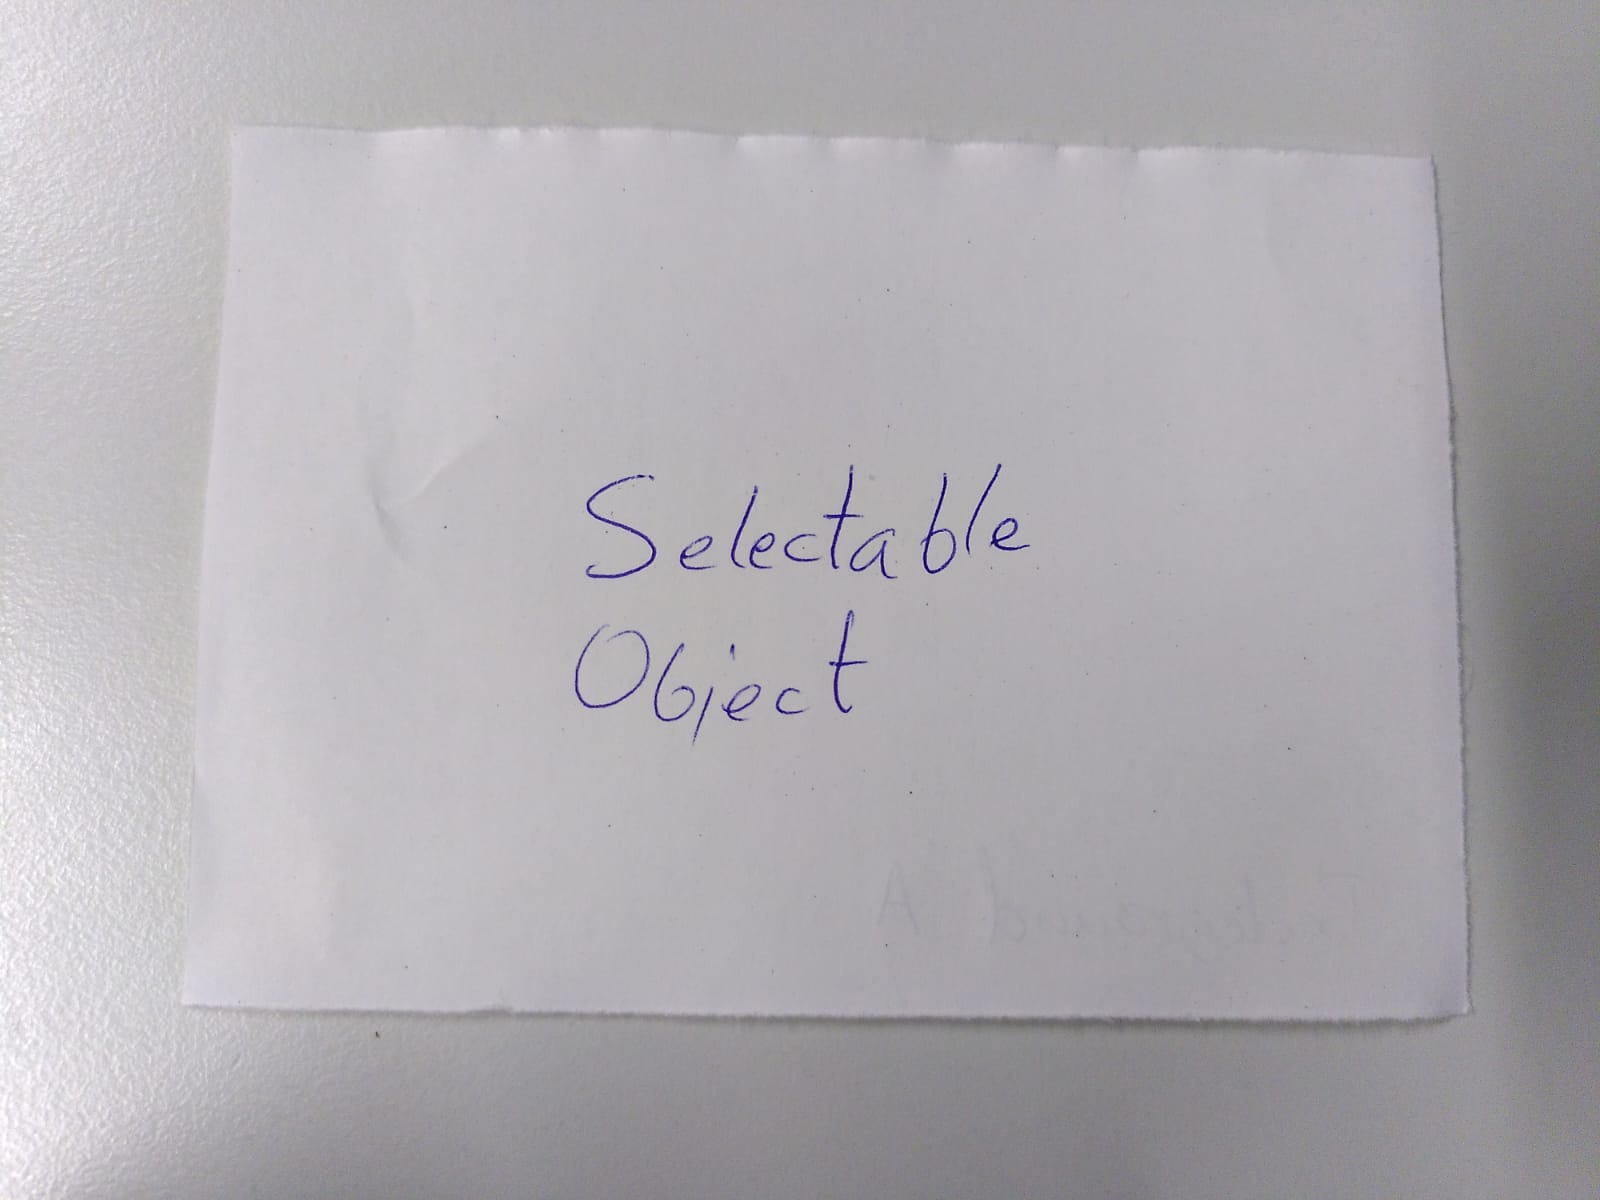 Selectable
Object